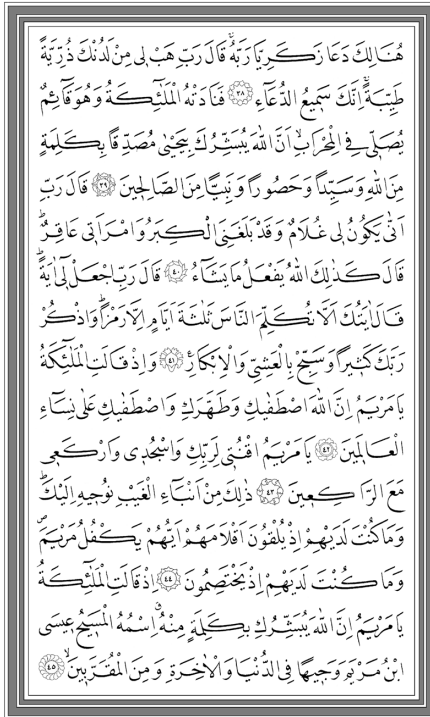 هُنَالِكَ دَعَا زَكَرِيَّا رَبَّهُۚ قَالَ رَبِّ هَبْ لِى مِنْ لَدُنْكَ ذُرِّيَّةً
طَيِّبَةًۚ اِنَّكَ سَمِيعُ الدُّعَٓاءِ ﴿٣٨﴾ فَنَادَتْهُ الْمَلٰٓئِكَةُ وَهُوَ قَٓائِمٌ
يُصَلِّى فِى الْمِحْرَابِۙ اَنَّ اللّٰهَ يُبَشِّرُكَ بِيَحْيٰى مُصَدِّقاً بِكَلِمَةٍ
مِنَ اللّٰهِ وَسَيِّداً وَحَصُوراً وَنَبِيًّا مِنَ الصَّالِحِينَ ﴿٣٩﴾ قَالَ رَبِّ
اَنّٰى يَكُونُ لِى غُلَامٌ وَقَدْ بَلَغَنِىَ الْكِبَرُ وَامْرَاَتِى عَاقِرٌۜ
قَالَ كَذٰلِكَ اللّٰهُ يَفْعَلُ مَا يَشَٓاءُ ﴿٤٠﴾ قَالَ رَبِّ اجْعَلْ لِٓى اٰيَةًۜ
قَالَ اٰيَتُكَ اَلَّا تُكَلِّمَ النَّاسَ ثَلٰثَةَ اَيَّامٍ اِلَّا رَمْزاًۜ وَاذْكُرْ
رَبَّكَ كَثِيراً وَسَبِّحْ بِالْعَشِىِّ وَالْاِبْكَارِ۟ ﴿٤١﴾ وَاِذْ قَالَتِ الْمَلٰٓئِكَةُ
يَا مَرْيَمُ اِنَّ اللّٰهَ اصْطَفٰيكِ وَطَهَّرَكِ وَاصْطَفٰيكِ عَلٰى نِسَٓاءِ
الْعَالَمِينَ ﴿٤٢﴾ يَا مَرْيَمُ اقْنُتِى لِرَبِّكِ وَاسْجُدِى وَارْكَعِى
مَعَ الرَّاكِعِينَ ﴿٤٣﴾ ذٰلِكَ مِنْ اَنْبَٓاءِ الْغَيْبِ نُوحِيهِ اِلَيْكَۜ
وَمَا كُنْتَ لَدَيْهِمْ اِذْ يُلْقُونَ اَقْلَامَهُمْ اَيُّهُمْ يَكْفُلُ مَرْيَمَۖ
وَمَا كُنْتَ لَدَيْهِمْ اِذْ يَخْتَصِمُونَ ﴿٤٤﴾ اِذْ قَالَتِ الْمَلٰٓئِكَةُ
يَا مَرْيَمُ اِنَّ اللّٰهَ يُبَشِّرُكِ بِكَلِمَةٍ مِنْهُۗ اِسْمُهُ الْمَسِيحُ عِيسَى
ابْنُ مَرْيَمَ وَجِيهاً فِى الدُّنْيَا وَالْاٰخِرَةِ وَمِنَ الْمُقَرَّبِينَۙ ﴿٤٥﴾